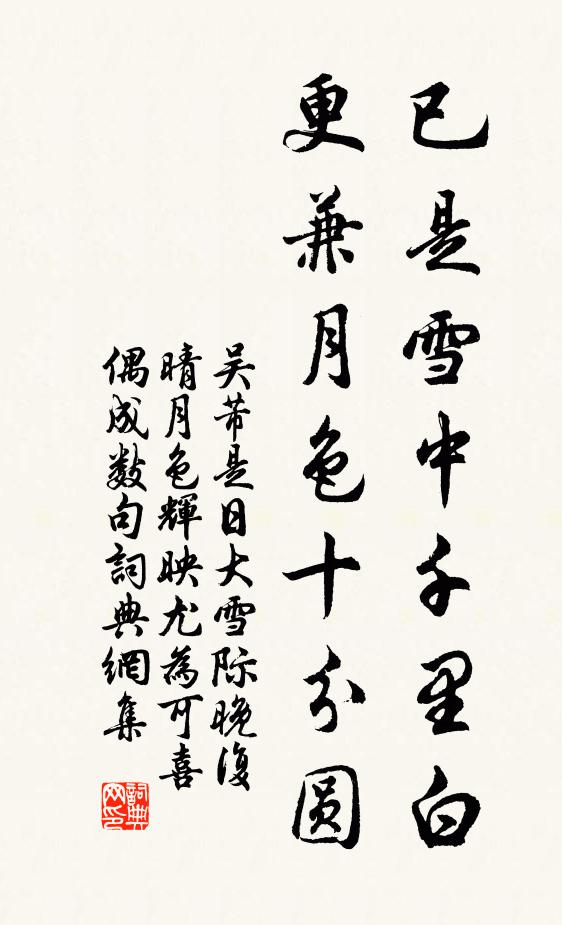 已是雪中千里白
更兼月色十分圆
吴芾是日大雪际晚復
晴月色輝映尤為可喜
偶成数句詞典網集
詞典网印